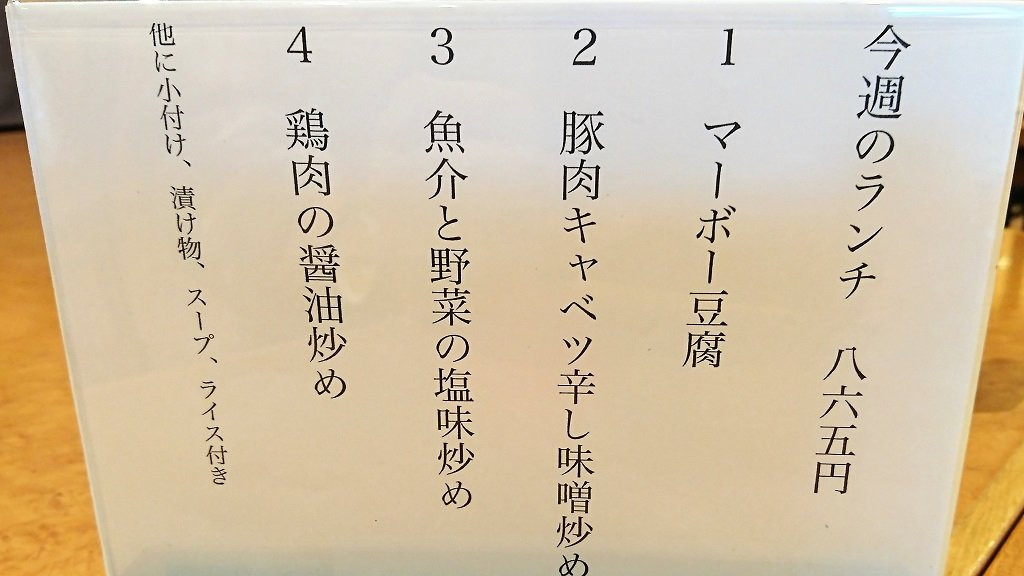 今週のランチ 八六五円
1 マーボー豆腐
2 豚肉キャベツ辛し味噌炒め
3 魚介と野菜の塩味炒め
4 鶏肉の醤油炒め
他に小付け、漬け物、スープ、ライス付き